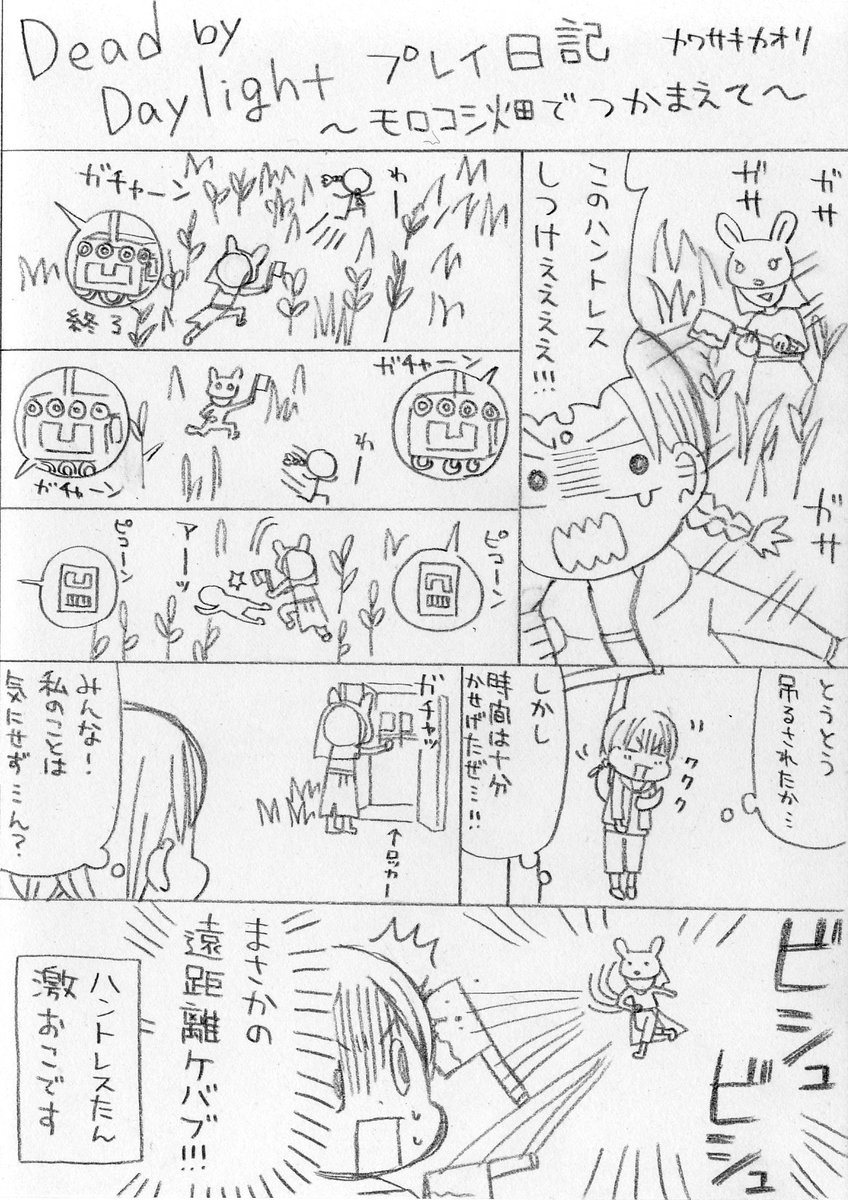 Dead by
Daylight
プレイ日記
カワサキカオリ
〜モロコシ畑でつかまえて〜
ガサ
ガサ
このハントレス
しつけぇぇぇぇ!!!
ガサ
ガチャーン
わー
終了
ガチャーン
わー
ガチャーン
ピコーン
アーッ
ピコーン
とうとう
吊るされたか…
ククク
しかし
時間は十分
かせげたぜ…!!
ガチャッ
↑ロッカー
みんな!
私のことは
気にせず…ん?
ビシュ
ビシュ
まさかの
遠距離ケバブ!!!
ハントレスたん
激おこです